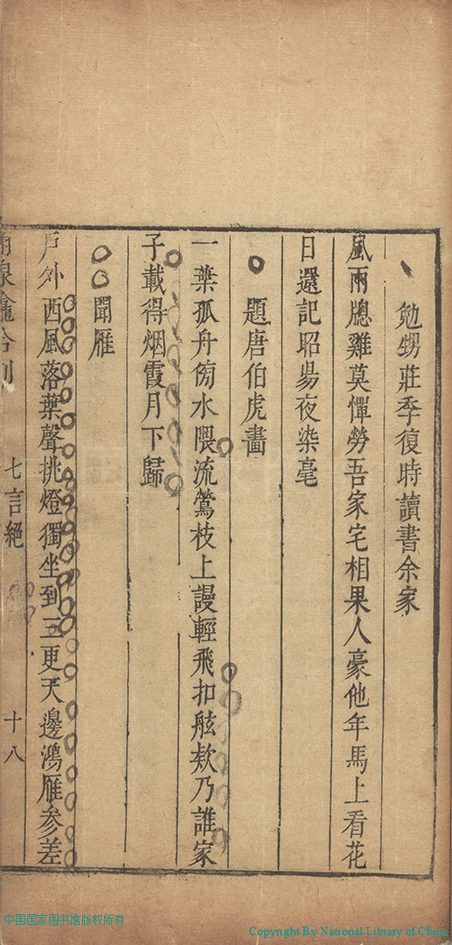 勉甥莊季復時讀書余家
風雨牕雞莫憚勞吾家宅相果人豪他年馬上看花
日還記昭昜夜染毫
題唐伯虎畵
一葉孤舟傍水隈流鶯枝上謾輕飛扣舷欸乃誰家
子載得烟霞月下歸
聞雁
戶外西風落葉聲挑燈獨坐到三更天邊鴻雁參差
合刋
七言絕
十八
中国国家图书馆版权所有
Copyright By National Library of China